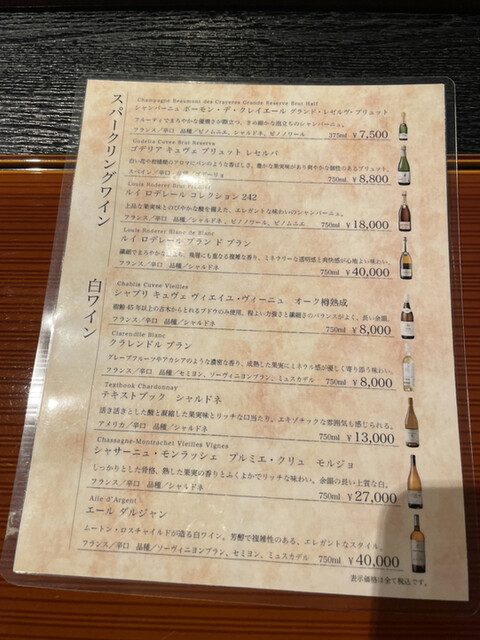 スパークリングワイン
Champagne Beaumont des Crayeres Grande Reserve Brut Half
シャンパーニュ ボーモン・デ・クレイエール グランド・レゼルヴ・ブリュット
フルーティでまろやかな優雅さが際立つ、きめ細かな泡立ちのシャンパーニュ。
フランス／辛口 品種／ピノムニエ、シャルドネ、ピノノワール 375ml ￥7,500
Godelia Cuvee Brut Reserva
ゴデリア キュヴェ ブリュット レセルバ
白い花や柑橘類のアロマにパンのような香ばしさ。豊かな果実味があり爽やかな個性のあるブリュット。
スペイン／辛口 品種／ 750ml ￥8,800
Louis Roderer Brut
ルイ ロデレール コレクション 242
上品な果実味とのびやかな酸を備えた、エレガントな味わいのシャンパーニュ。
フランス／辛口 品種／シャルドネ、ピノノワール、ピノムニエ 750ml ￥18,000
Louis Roderer Blanc de Blanc
ルイ ロデレール ブラン ド ブラン
繊細でまろやかな 、幾層にも重なる複雑な香り。ミネラリーな透明感と爽快感が心地よい味わい。
フランス／辛口 品種／シャルドネ 750ml ￥40,000
白ワイン
Chablis Cuvee Vieilles
シャブリ キュヴェ ヴィエイユ・ヴィーニュ オーク樽熟成
樹齢45年以上の古木からとれるブドウのみ使用。程よい力強さと繊細さのバランスがよく、長い余韻。
フランス／辛口 品種／シャルドネ 750ml ￥8,000
Clarendlle Blanc
クラレンドル ブラン
グレープフルーツやアカシアのような濃密な香り、成熟した果実にミネラル感が優しく寄り添う味わい。
フランス／辛口 品種／セミヨン、ソーヴィニヨンブラン、ミュスカデル 750ml ￥8,000
Textbook Chardonnay
テキストブック シャルドネ
活き活きとした酸と凝縮した果実味とリッチな口当たり。エキゾチックな雰囲気も感じられる。
アメリカ／辛口 品種／シャルドネ 750ml ￥13,000
Chassagne-Montrachet Vieilles Vignes
シャサーニュ・モンラッシェ プルミエ・クリュ モルジョ
しっかりとした骨格、熟した果実の香りとふくよかでリッチな味わい。余韻の長い上質な白。
フランス／辛口 品種／シャルドネ 750ml ￥27,000
Aile d'Argent
エール ダルジャン
ムートン・ロスチャイルドが造る白ワイン。芳醇で複雑性のある、エレガントなスタイル。
フランス／辛口 品種／ソーヴィニヨンブラン、セミヨン、ミュスカデル 750ml ￥40,000
表示価格は全て税込です。